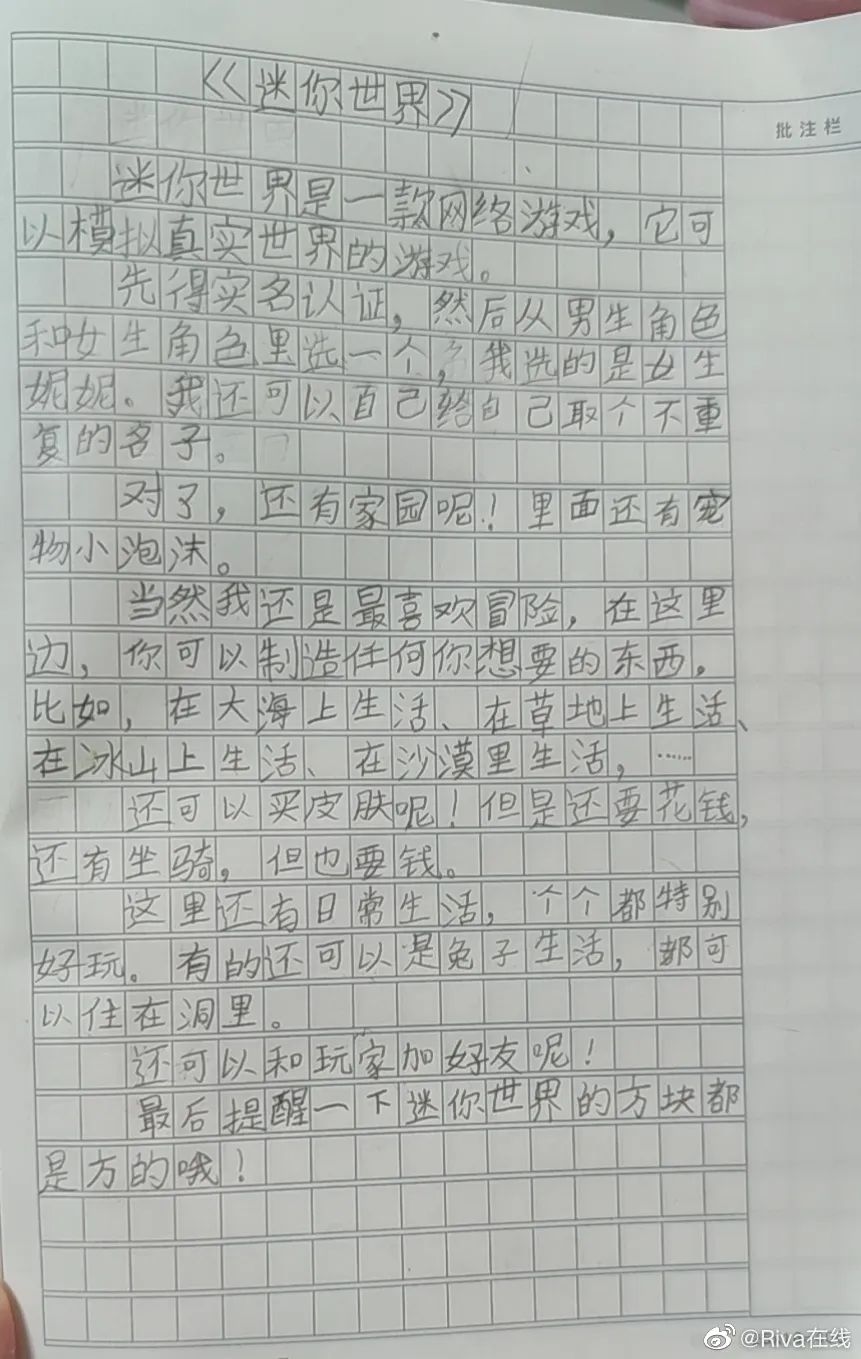 《迷你世界》
批注栏
迷你世界是一款网络游戏，它可
以模拟真实世界的游戏。
先得实名认证，然后从男生角色
和女生角色里选一个，我选的是女生
妮妮。我还可以自己给自己取个不重
复的名子。
对了，还有家园呢！里面还有宠
物小泡沫。
当然我还是最喜欢冒险，在这里
边，你可以制造任何你想要的东西。
比如，在大海上生活、在草地上生活、
在冰山上生活、在沙漠里生活，……
还可以买皮肤呢！但是还要花钱，
还有坐骑，但也要钱。
这里还有日常生活，个个都特别
好玩。有的还可以是兔子生活，都可
以住在洞里。
还可以和玩家加好友呢！
最后提醒一下迷你世界的方块都
是方的哦！
@Riva在线